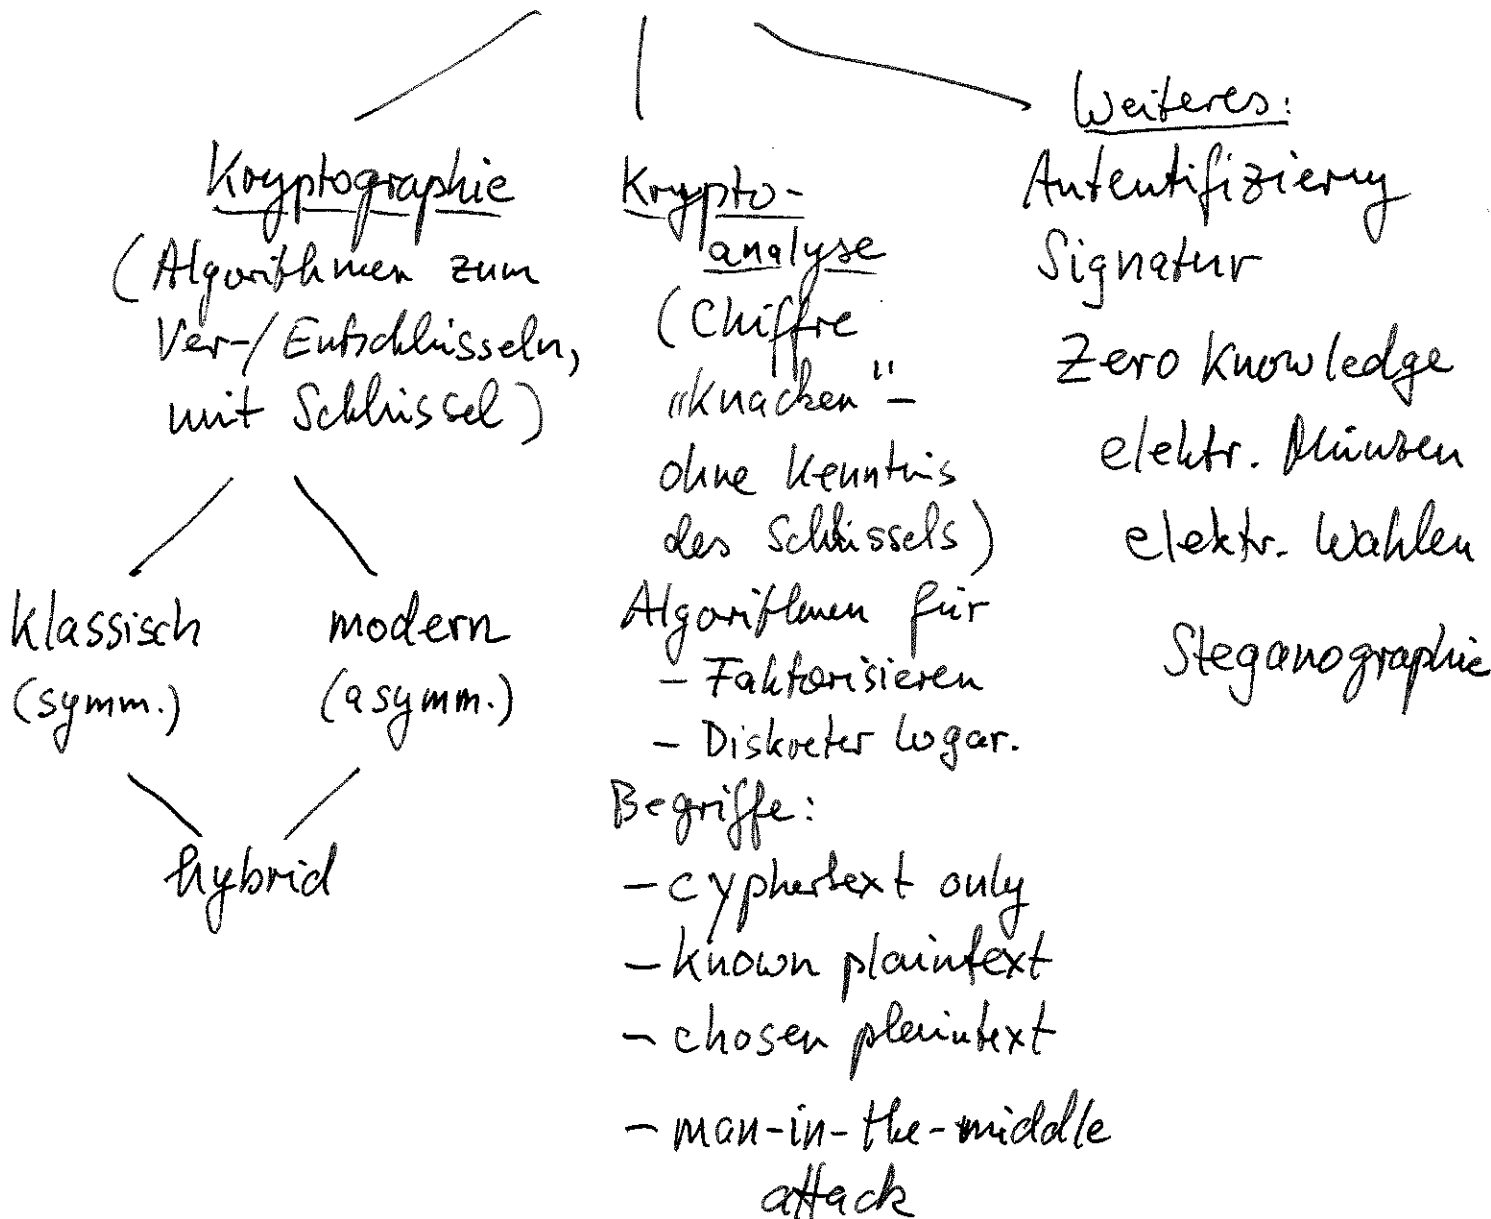 Kryptographie
(Algorithmen zum
Ver-/Entschlüsseln,
mit Schlüssel)
klassisch
(symm.)
modern
(asymm.)
hybrid
Krypto-
analyse
(Chiffre
„Knacken" -
ohne Kenntnis
des Schlüssels)
Algorithmen für
- Faktorisieren
- Diskreter Logar.
Begriffe:
- cyphertext only
- known plaintext
- chosen plaintext
- man-in-the-middle
attack
Weiteres:
Autentifizierung
Signatur
Zero Knowledge
elektr. Münzen
elektr. Wahlen
Steganographie